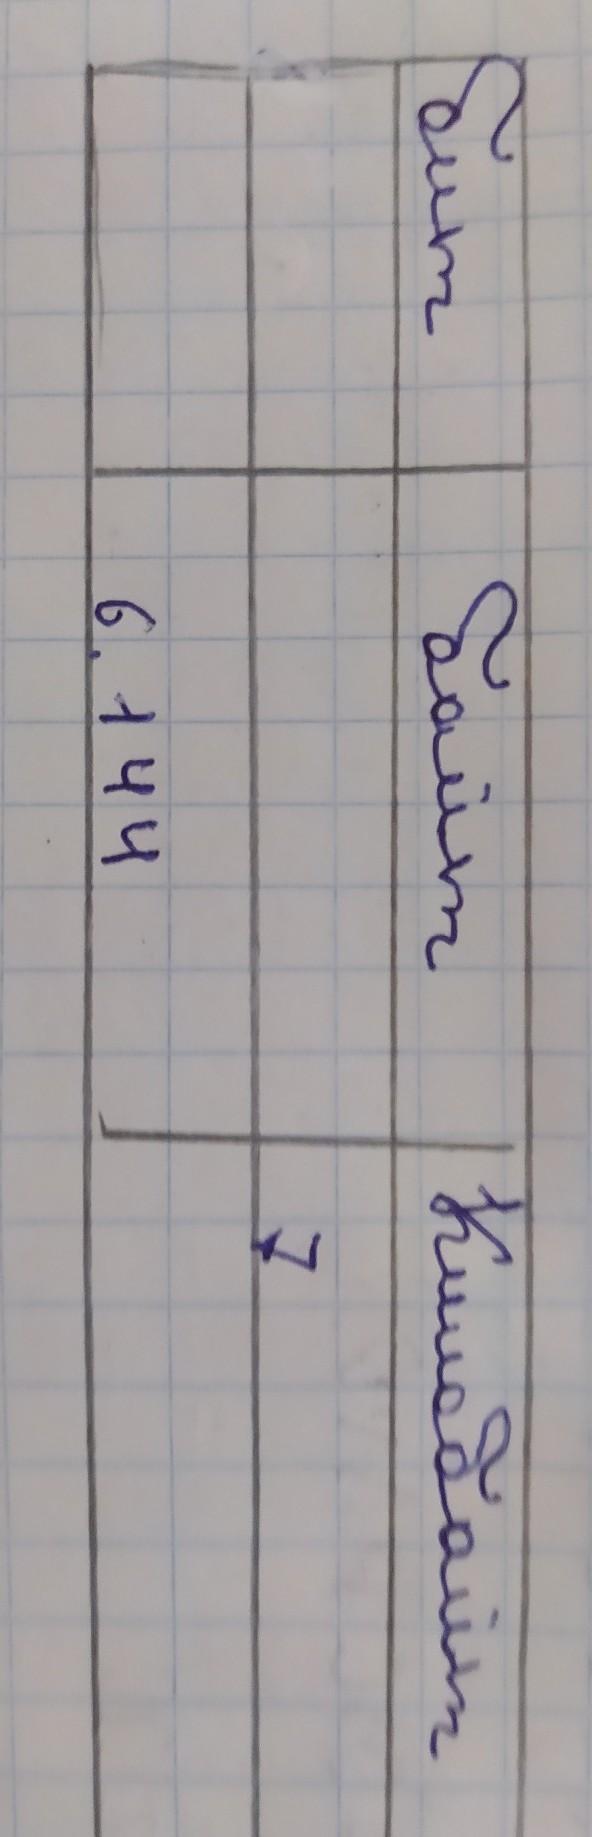 бит байт Килобайт
7
6.144